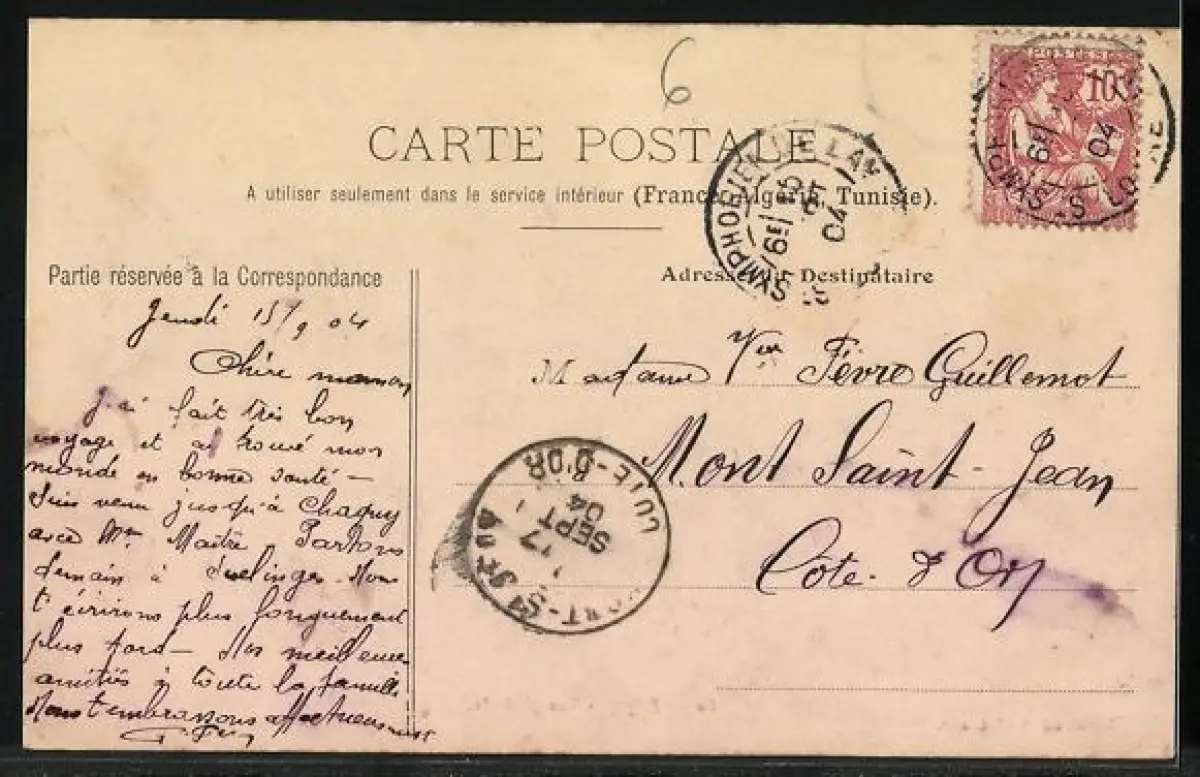 6
CARTE POSTALE
A utiliser seulement dans le service intérieur (France, Algérie, Tunisie).
POSTES
10
ST SYMPHORIEN DE LAY
6E 15 SEPT 04
ST SYMPHO LAY
6E 04
Partie réservée à la Correspondance
Adresse du Destinataire
Jeudi 15/9 04
Chère maman
J'ai fait très bon
voyage et ai trouvé mon
monde en bonne santé –
Suis venu jusqu'à Chagny
avec Mr Maître. Partons
demain à Nous
t'écrirons plus longuement
plus tard – Nos meilleures
amitiés à toute la famille
Nous t'embrassons affectueusement
Madame Vve Fèvre Guillemot
Mont Saint-Jean
Côte-d'Or
MONT-ST-JEAN
17 SEPT 04
COTE-D'OR